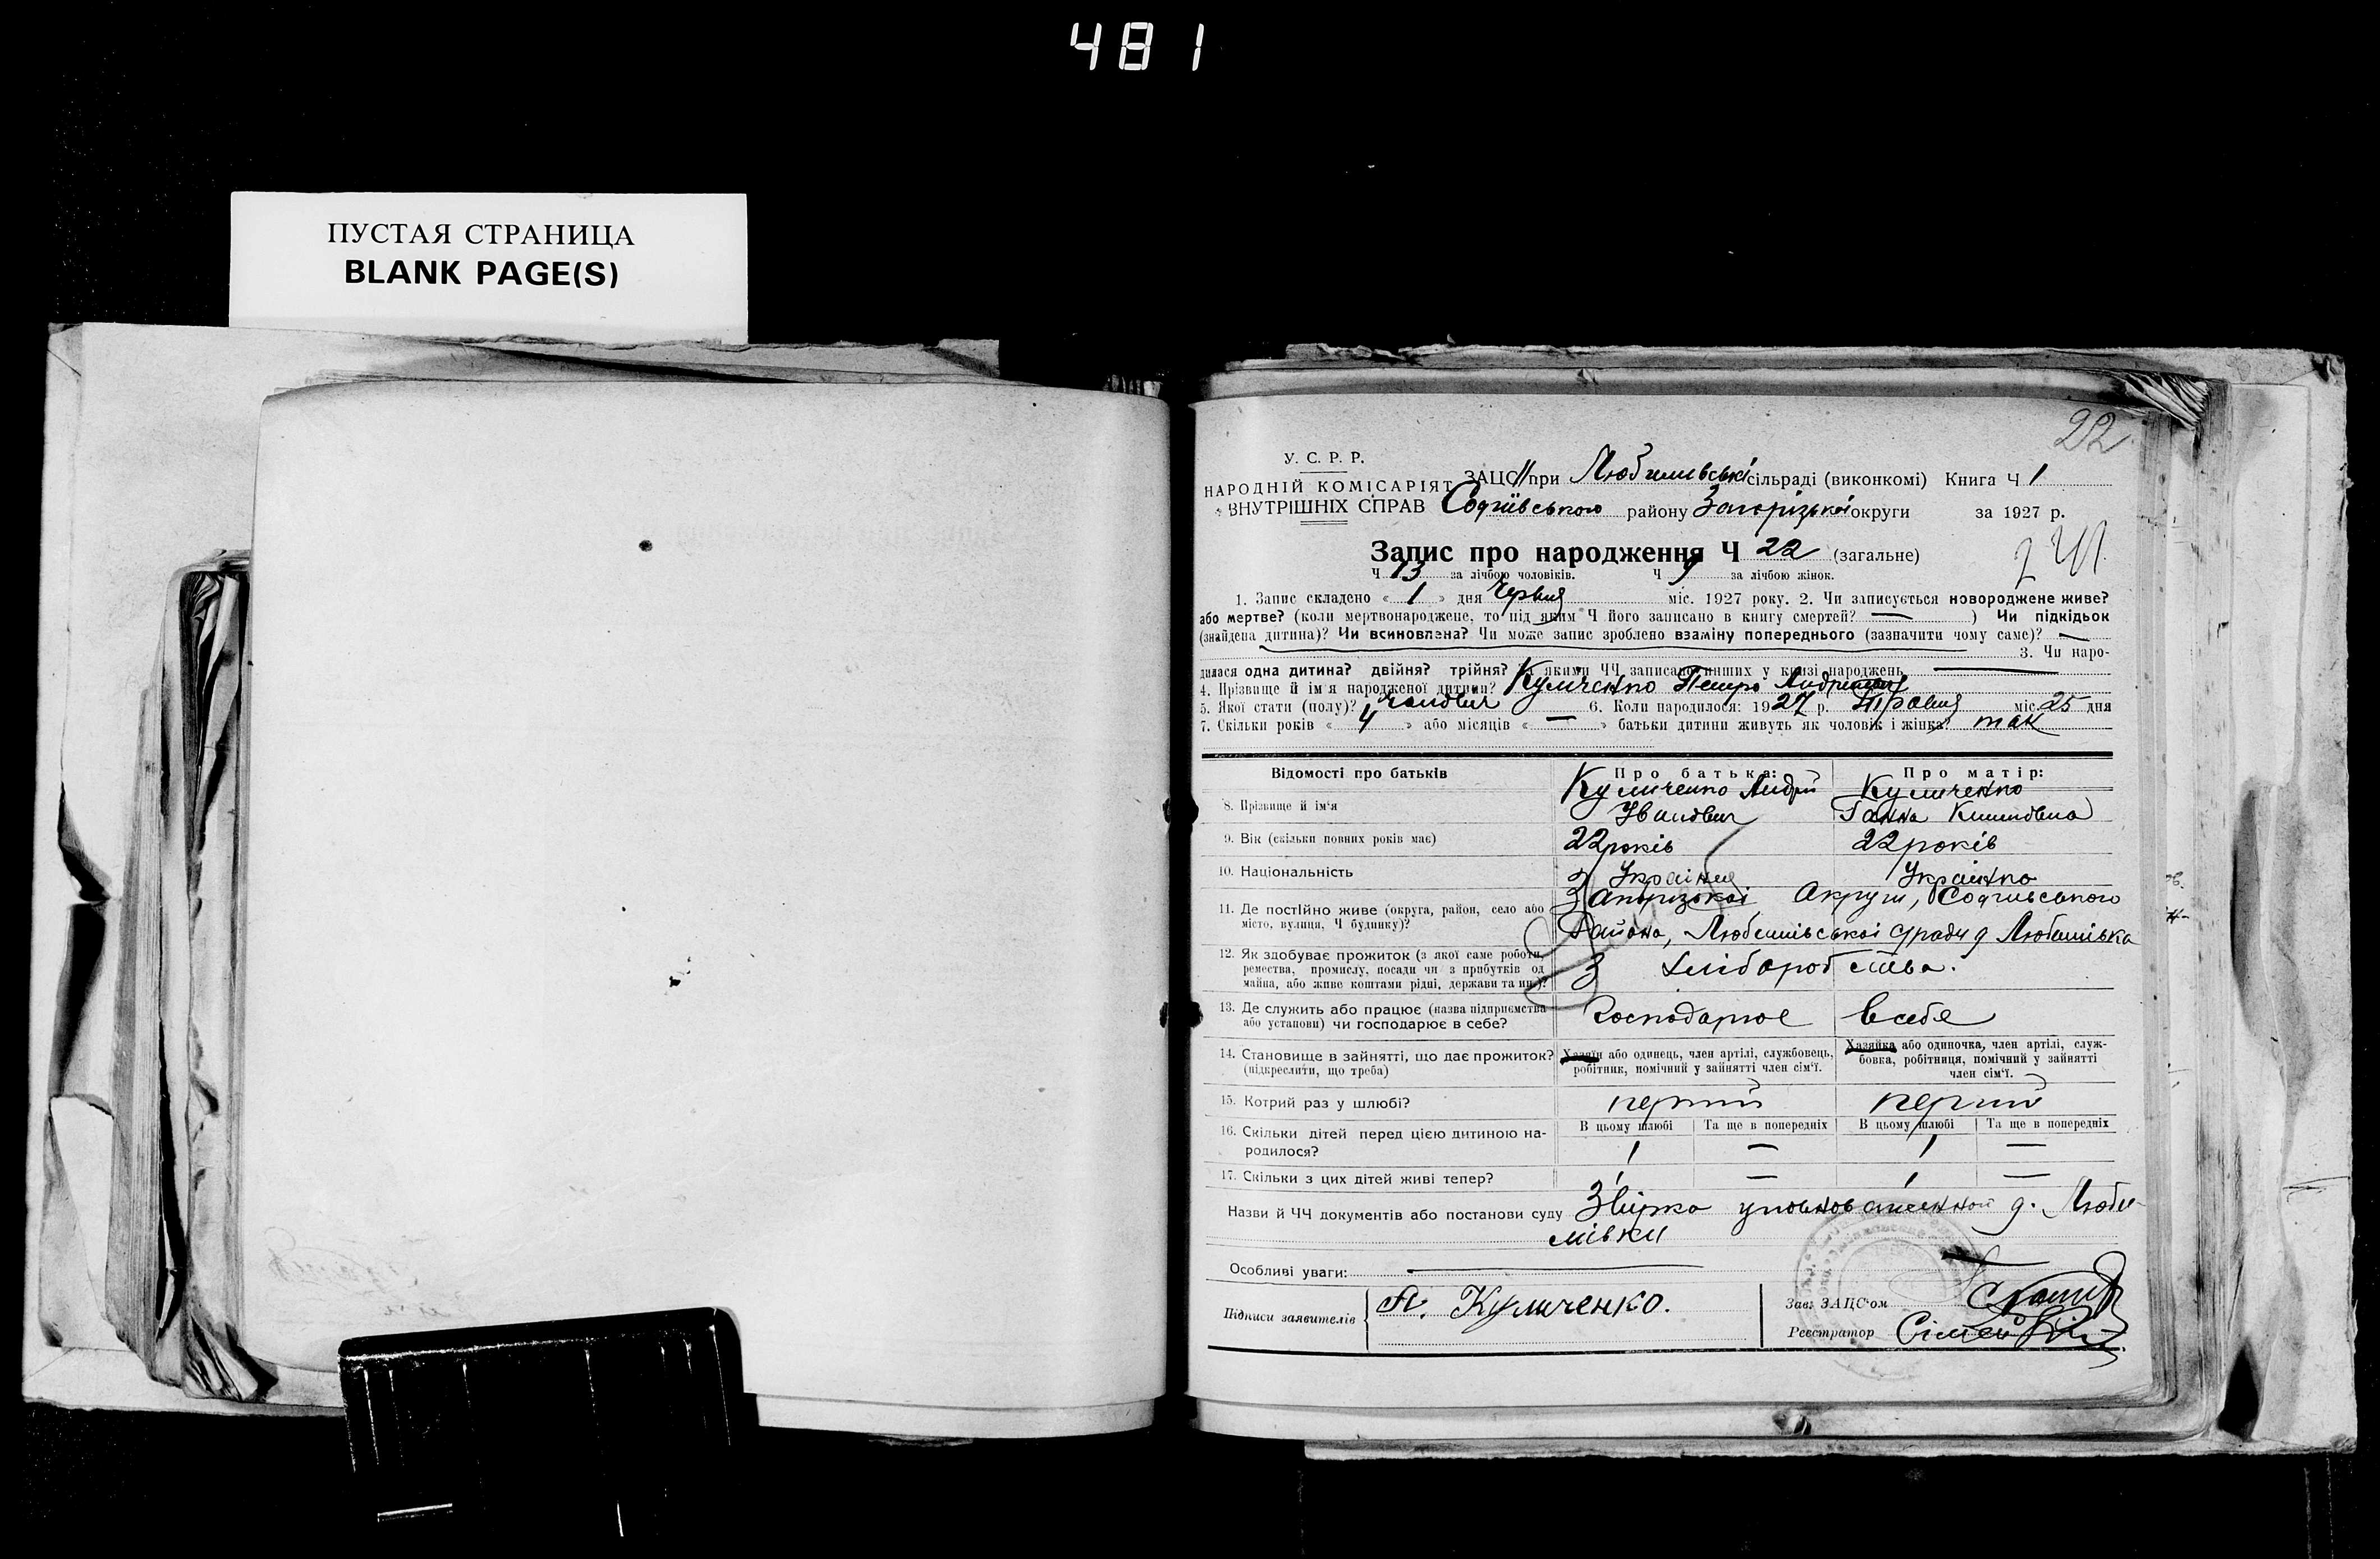 481
ПУСТАЯ СТРАНИЦА
BLANK PAGE(S)
22
У. С. Р. Р.
НАРОДНІЙ КОМІСАРІЯТ
ВНУТРІШНІХ СПРАВ
ЗАЦС при Любимівські сільраді (виконкомі) Книга Ч 1
Софіївського району Запорізької округи за 1927 р.
Запис про народження Ч 22 (загальне)
Ч 13 за лічбою чоловіків. Ч 9 за лічбою жінок.
1. Запис складено « 1 » дня Червня міс. 1927 року. 2. Чи записується новороджене живе?
або мертве? (коли мертвонароджене, то під яким Ч його записано в книгу смертей? — ) Чи підкідьок
(знайдена дитина)? Чи всиновлена? Чи може запис зроблено взаміну попереднього (зазначити чому саме)? —
3. Чи наро-
дилася одна дитина? двійня? трійня? За якими ЧЧ записано инших у книзі народжень —
4. Прізвище й ім'я народженої дитини? Куличенко Петро Андреевич
5. Якої стати (полу)? 6. Коли народилося: 1927 р. Травня міс. 25 дня
7. Скільки років « 4 » або місяців « — » батьки дитини живуть як чоловік і жінка? так
Відомості про батьків Про батька: Про матір:
8. Прізвище й ім'я Куличенко Андрій Куличенко
Іванович Ганна
9. Вік (скільки повних років має) 22 років 22 років
10. Національність Українец Українка
11. Де постійно живе (округа, район, село або Запорізкоі Округи, Софиівського
місто, вулиця, Ч будинку)? Района, Любимівськоі с/ради д Любимівка
12. Як здобуває прожиток (з якої саме роботи, З хліборобства.
ремества, промислу, посади чи з прибутків од
майна, або живе коштами рідні, держави та ин.)?
13. Де служить або працює (назва підприємства Господарює в себе
або установи) чи господарює в себе?
14. Становище в зайнятті, що дає прожиток? Хазяїн або одинець, член артілі, службовець, Хазяйка або одиночка, член артілі, служ-
(підкреслити, що треба) робітник, помічний у зайнятті член сім'ї. бовка, робітниця, помічний у зайнятті
член сім'ї.
15. Котрий раз у шлюбі? перший перший
16. Скільки дітей перед цією дитиною на- В цьому шлюбі Та ще в попередніх В цьому шлюбі Та ще в попередніх
родилося? 1 — 1 —
17. Скільки з цих дітей живі тепер? 1 — 1 —
Назви й ЧЧ документів або постанови суду Звірка уповноваженной д. Люби-
мівки
Особливі уваги: —
Підписи заявителів А. Куличенко.
Зав. ЗАЦС'ом
Реєстратор